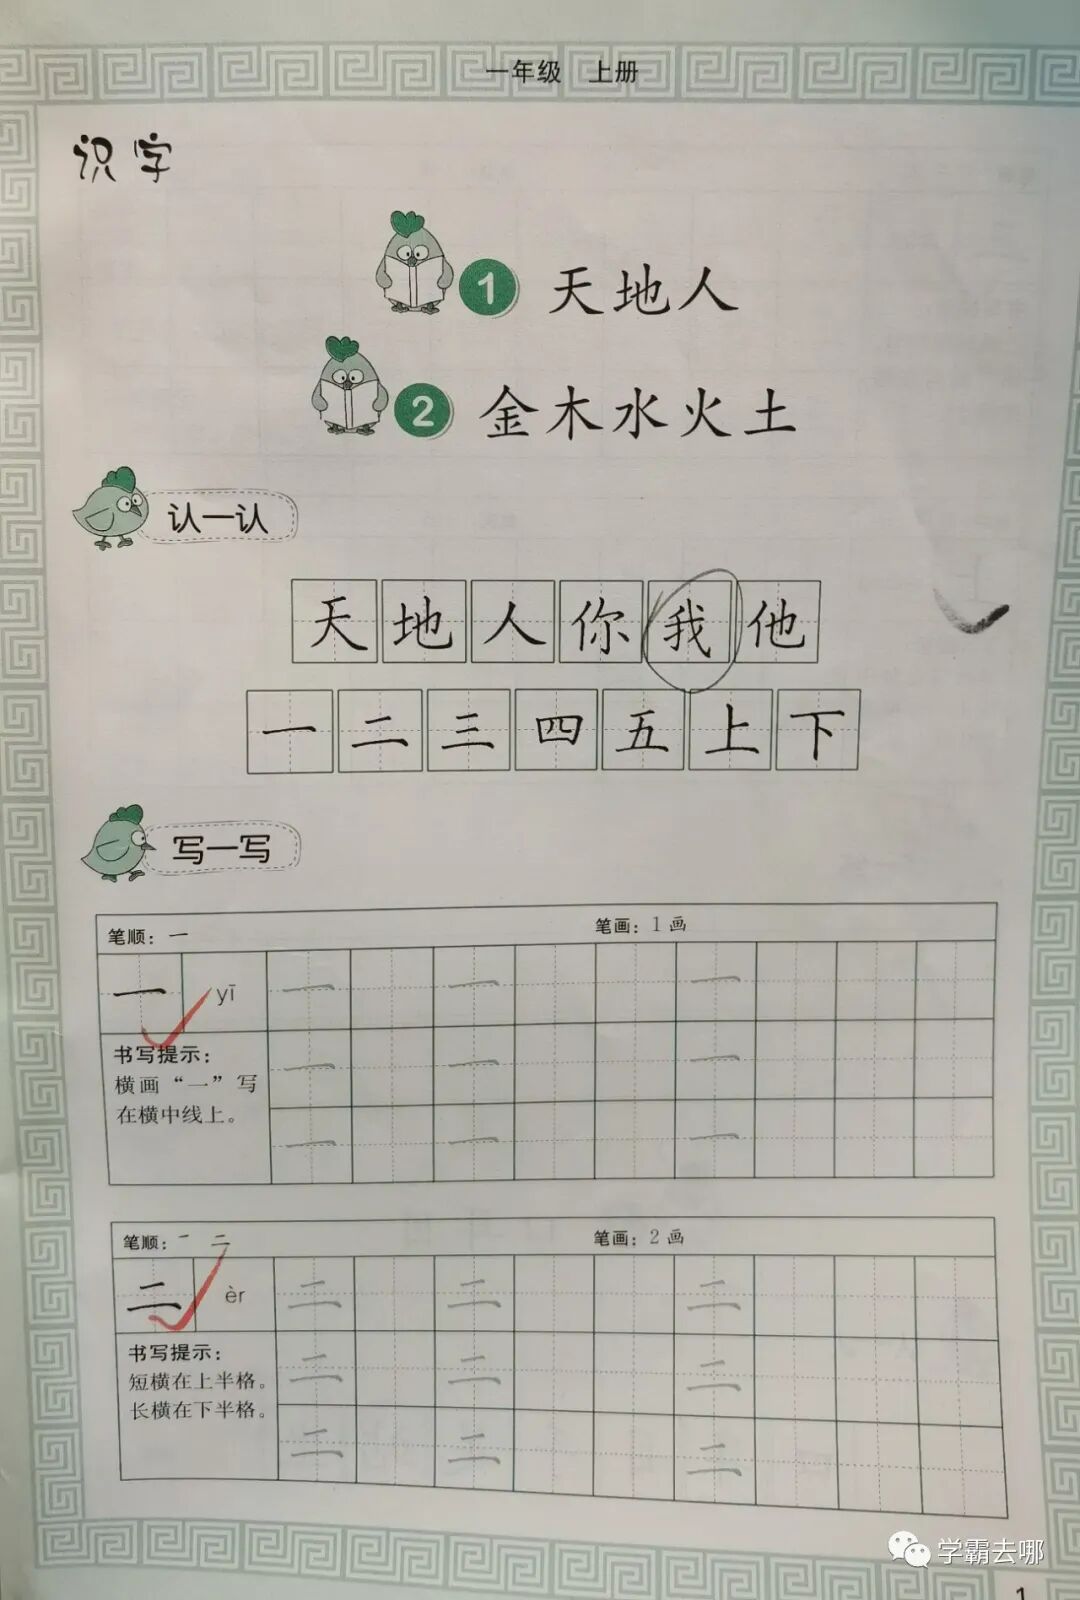 一年级 上册
识字
1 天地人
2 金木水火土
认一认
天地人你我他
一二三四五上下
写一写
笔顺：一 笔画：1画
一 yī 一 一 一
书写提示：
横画“一”写
在横中线上。
一 一 一
一 一 一
笔顺：一 二 笔画：2画
二 èr 二 二 二
书写提示：
短横在上半格。
长横在下半格。
二 二 二
二 二 二
学霸去哪
1